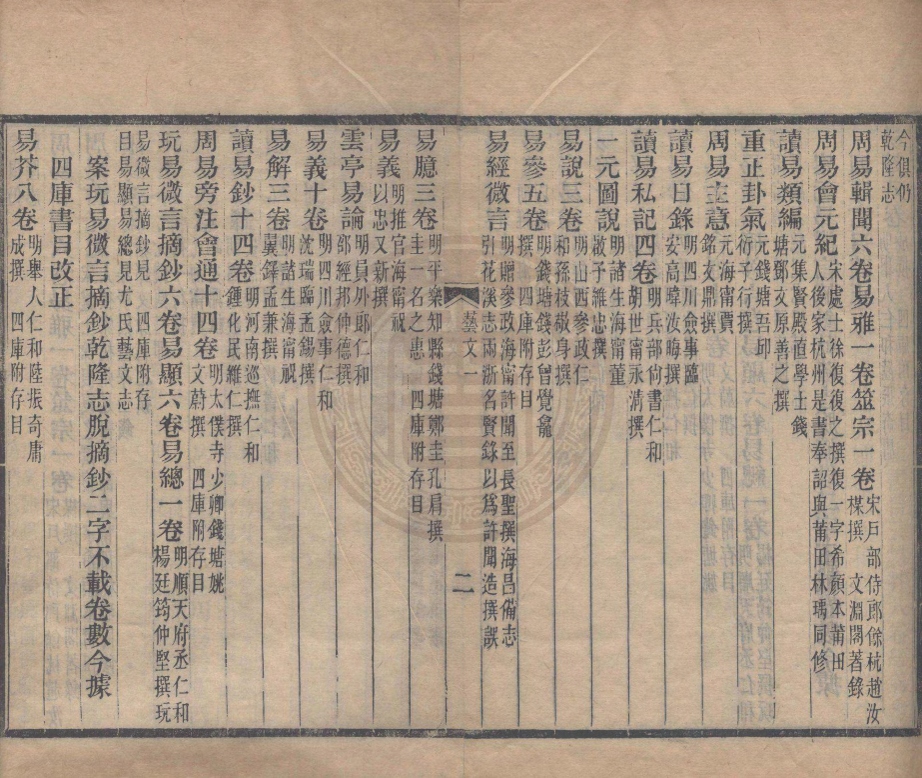 今俱仍
乾隆志
周易輯聞六卷易雅一卷筮宗一卷宋戸部侍郎餘杭趙汝
楳撰　文淵閣著錄
周易會元紀宋處士徐復復之撰復一字希顏本莆田
人後家杭州是書奉詔與莆田林瑀同修
讀易類編元集賢殿直學士錢
塘鄧文原善之撰
重正卦氣元錢塘吾邱
衍子行撰
周易主意元海甯賈
銘文鼎撰
讀易日錄明四川僉事臨
安高暐汝晦撰
讀易私記四卷明兵部尚書仁和
胡世甯永清撰
一元圖說明諸生海甯董
啟予維忠撰
易說三卷明山西參政仁
和孫枝敬身撰
易參五卷明錢塘錢彭曾覺龕
撰　四庫附存目
易經微言明贈參政海甯許聞至長聖撰海昌備志
引花溪志兩浙名賢錄以為許聞造撰誤
藝文一
二
易臆三卷明平樂知縣錢塘鄭圭孔肩撰
圭一名之惠　四庫附存目
易義明推官海甯祝
以忠又新撰
雲亭易論明員外郎仁和
邵經邦仲德撰
易義十卷明四川僉事仁和
沈瑞臨孟錫撰
易解三卷明諸生海甯祝
翼鐸孟兼撰
讀易鈔十四卷明河南巡撫仁和
鍾化民維仁撰
周易旁注會通十四卷明太僕寺少卿錢塘姚
文蔚撰　四庫附存目
玩易微言摘鈔六卷易顯六卷易總一卷明順天府丞仁和
楊廷筠仲堅撰玩
易微言摘鈔見　四庫附存
目易顯易總見尤氏藝文志
案玩易微言摘鈔乾隆志脫摘鈔二字不載卷數今據
四庫書目改正
易芥八卷明舉人仁和陸振奇庸
成撰　四庫附存目